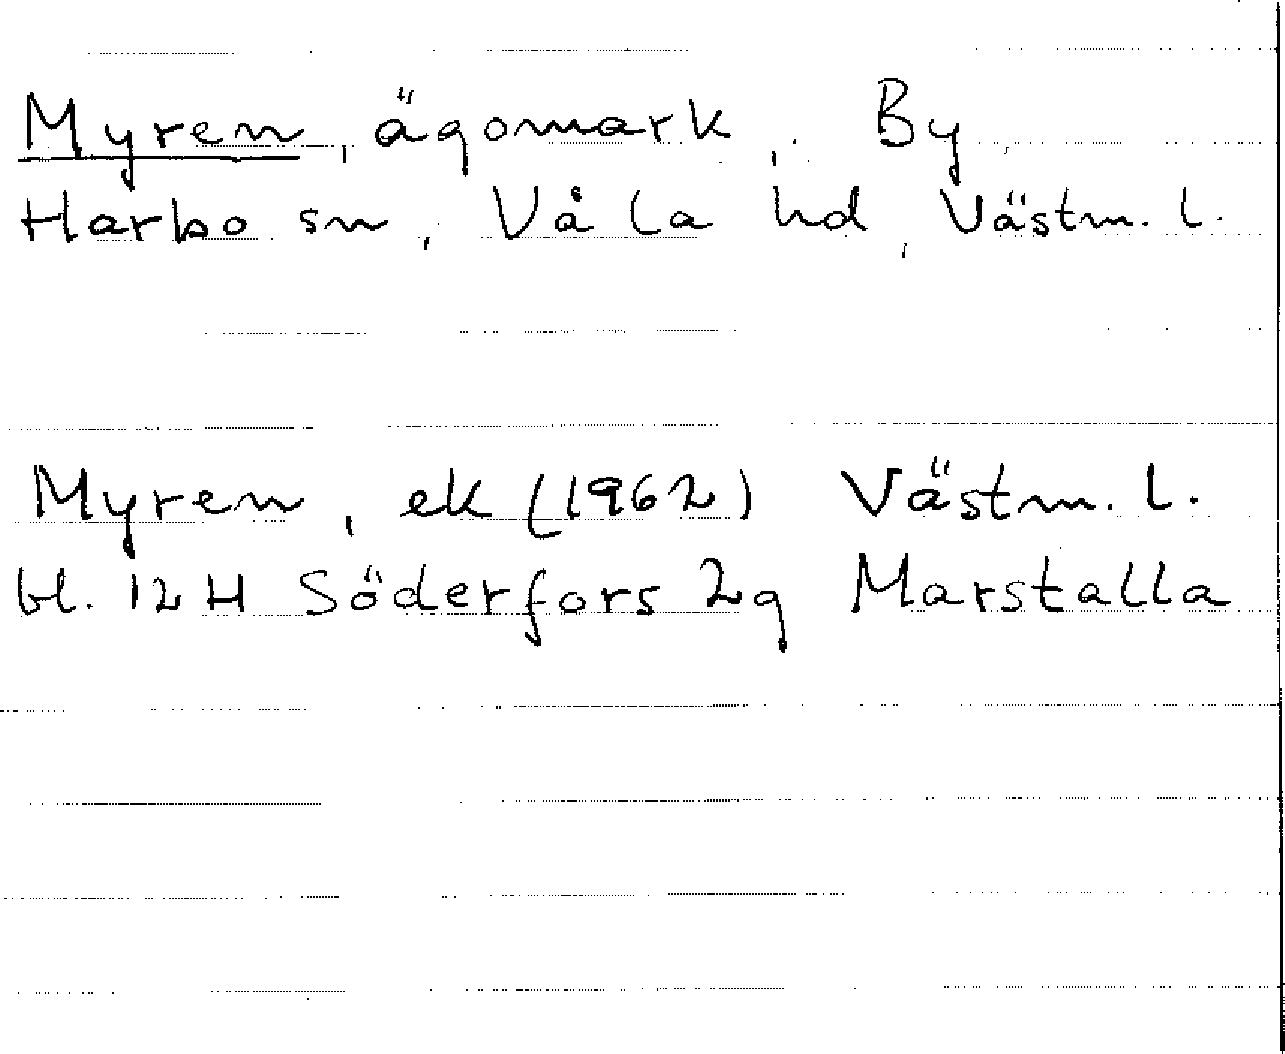 Myren, ägomark, By
Harbo sn, Våla hd, Västm. l.
Myren, ek (1962) Västm. l.
bl. 12 H Söderfors 2g Marstalla